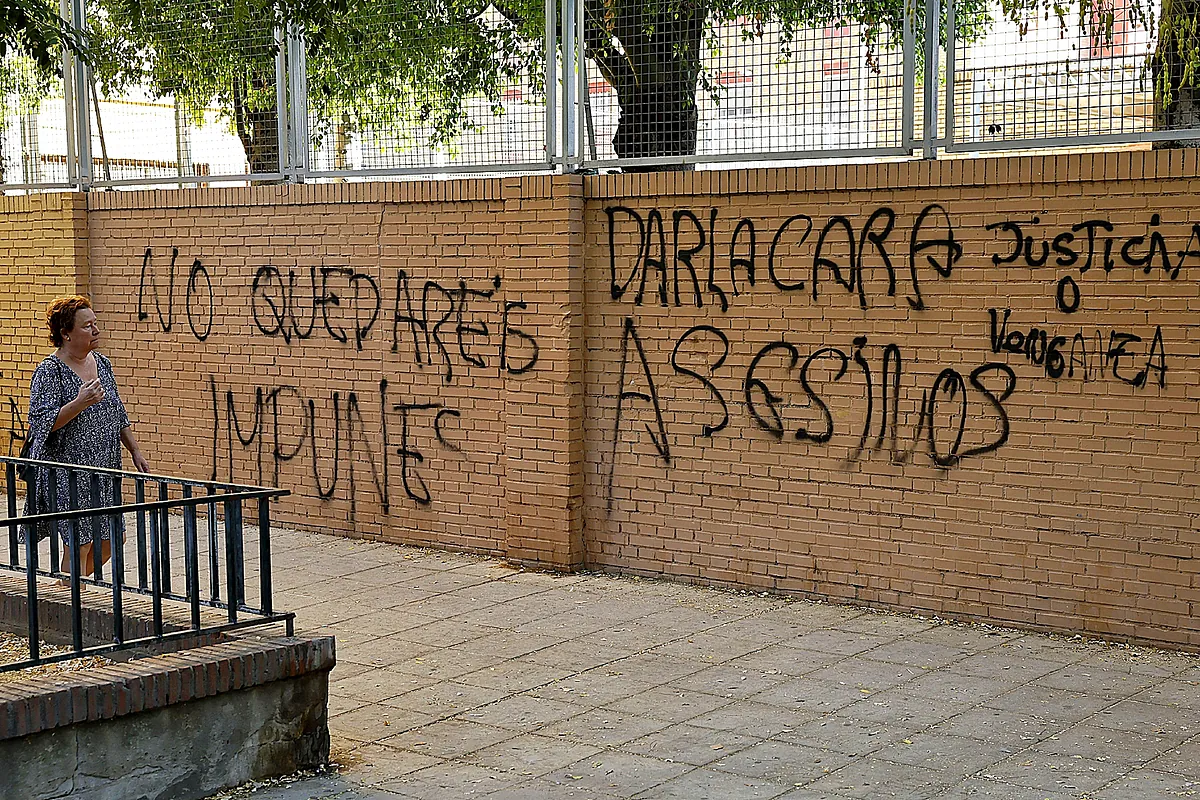 NO QUEDAREÍS
IMPUNES
DAR LA CARA
ASESiNOS
JUSTiCiA
O
VeNGANZA